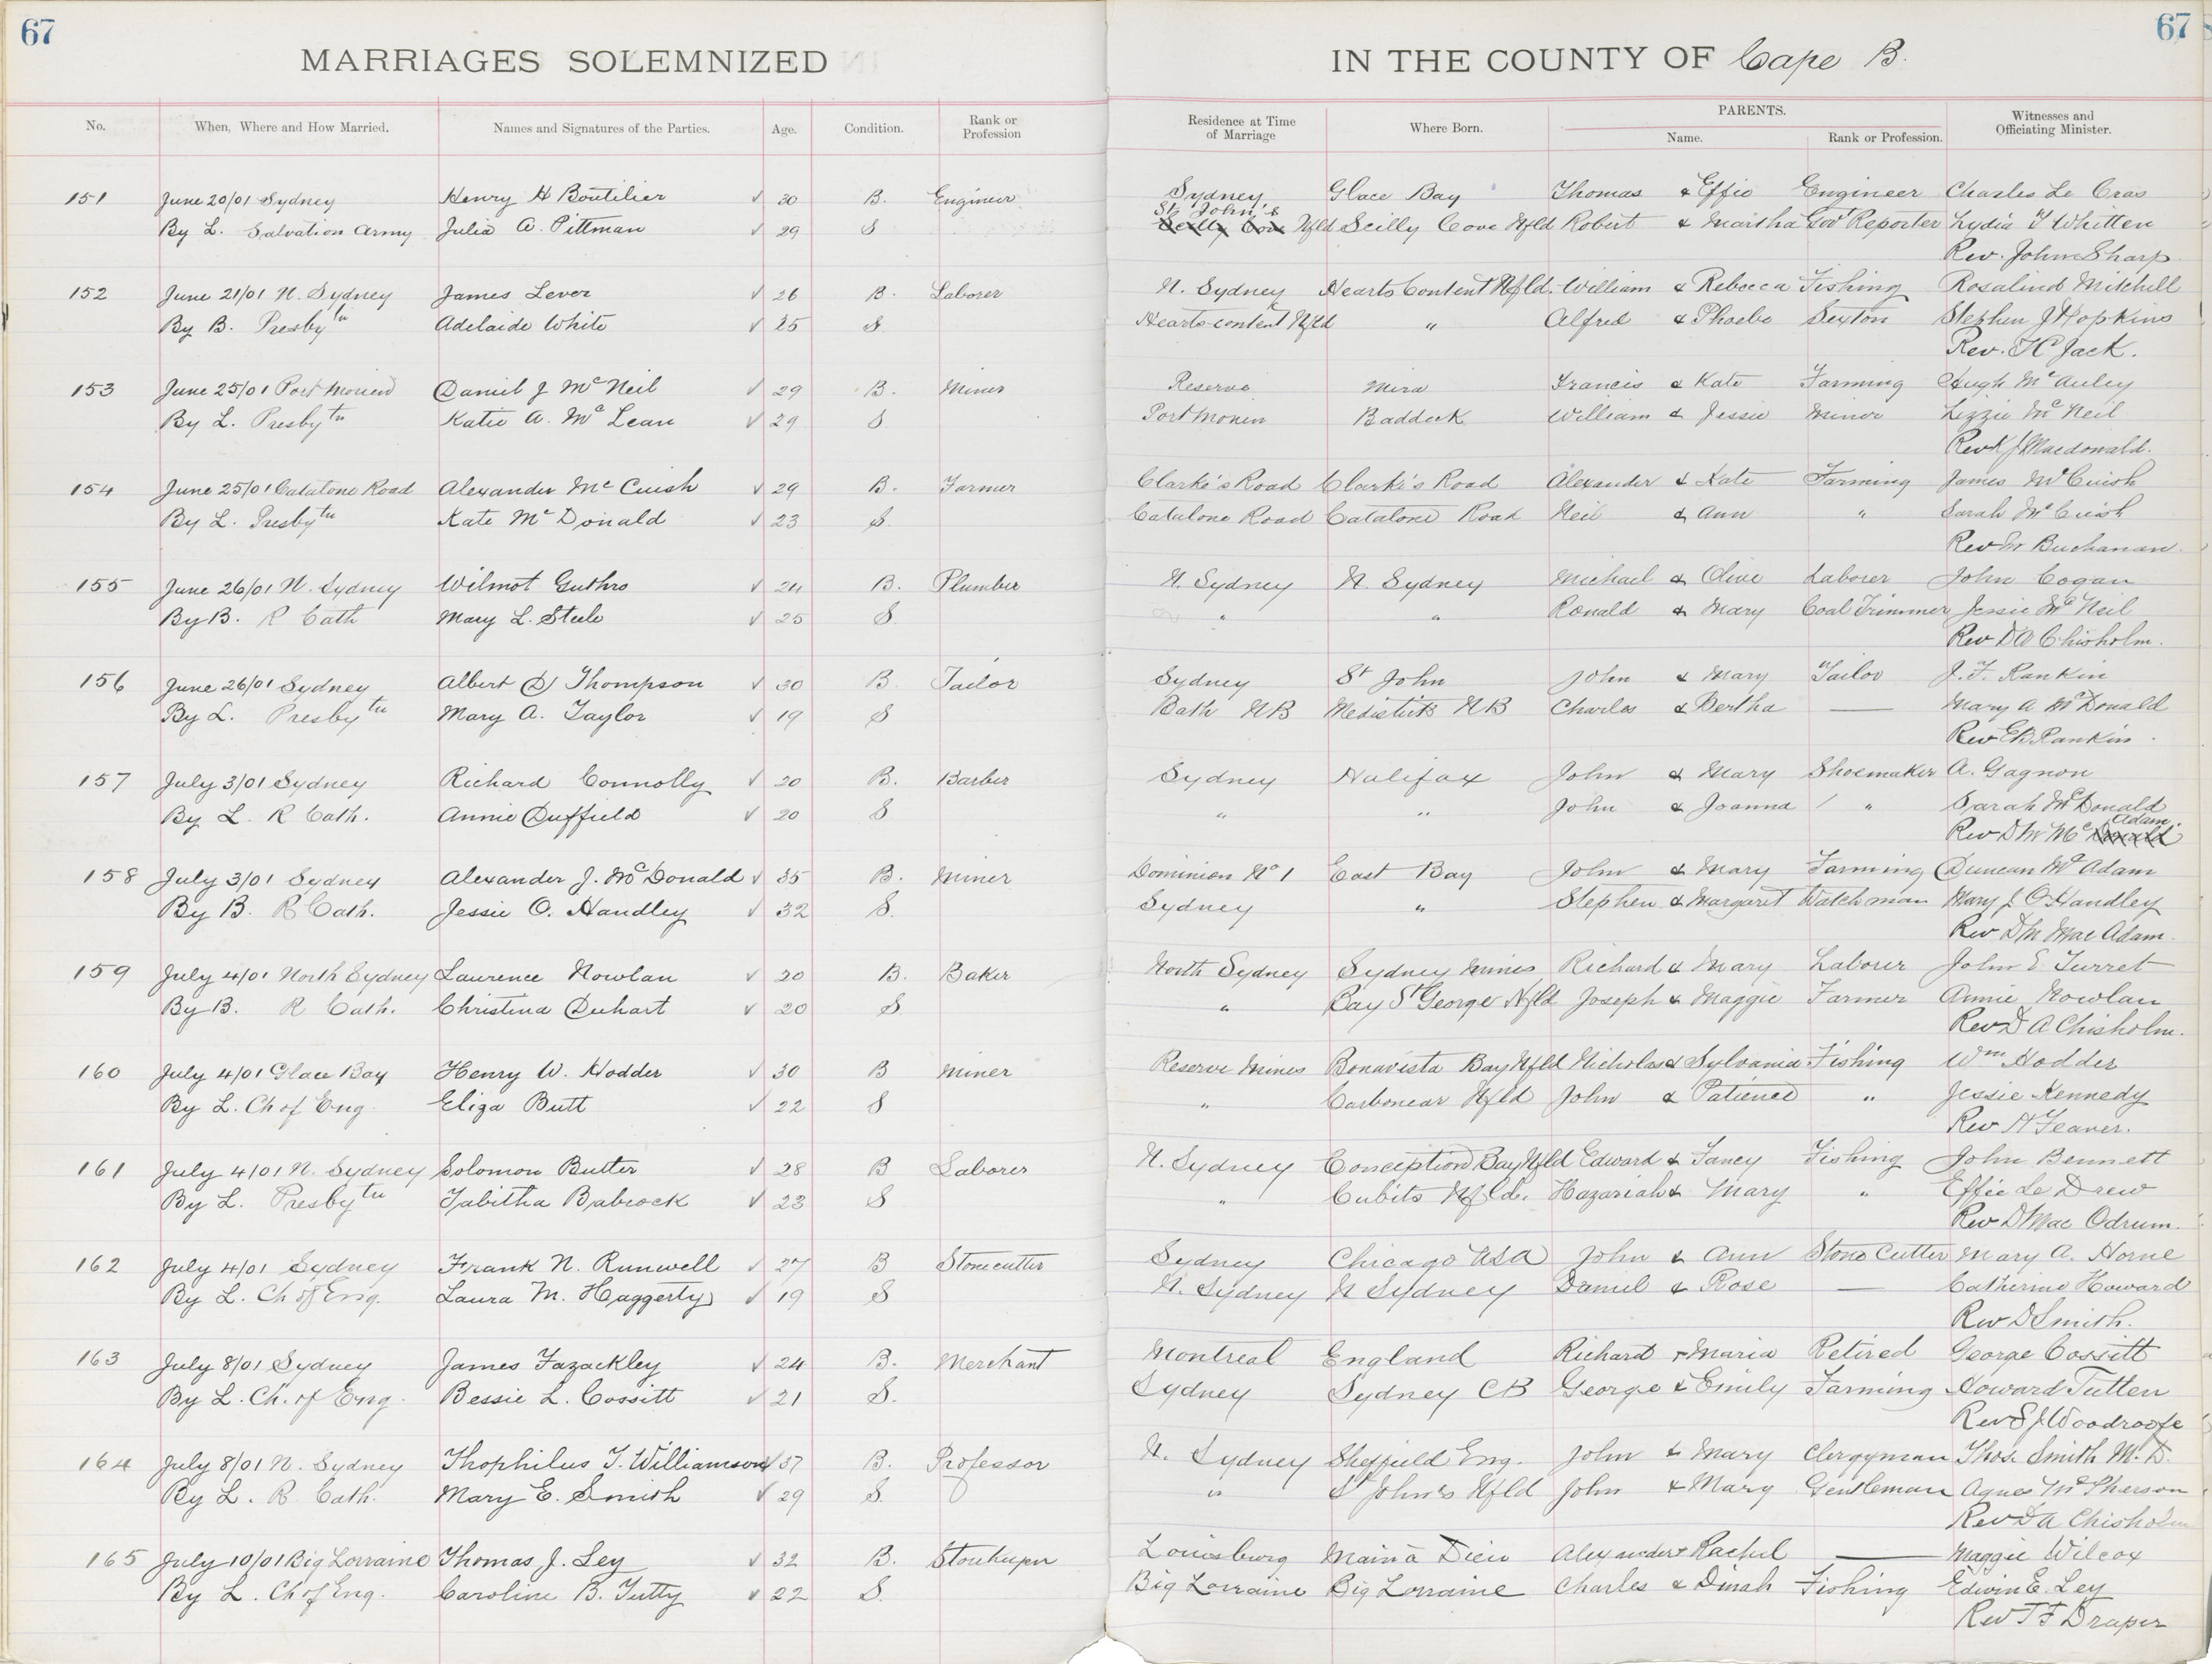 67
67
MARRIAGES SOLEMNIZED
IN THE COUNTY OF Cape B.
No. When, Where and How Married. Names and Signatures of the Parties. Age. Condition. Rank or Profession Residence at Time of Marriage Where Born. PARENTS. Name. Rank or Profession. Witnesses and Officiating Minister.
151 June 20/01 Sydney Henry H Boutilier √ 30 B. Engineer Sydney Glace Bay Thomas & Effie Engineer Charles Le Cras
St John's
By L. Salvation Army Julia A. Pittman √ 29 S Scilly Cove Nfld Scilly Cove Nfld Robert & Martha Govt Reporter Lydia T Whitten
Rev. John Sharp
152 June 21/01 N. Sydney James Lever √ 26 B. Laborer N. Sydney Hearts Content Nfld. William & Rebecca Fishing Rosalind Mitchell
By B. Presbytn Adelaide White √ 25 S Hearts content Nfld " Alfred & Phoebe Sexton Stephen J Hopkins
Rev. T C Jack.
153 June 25/01 Port Morien Daniel J McNeil √ 29 B. Miner Reserve Mira Francis & Kate Farming Hugh McAuley
By L. Presbytn Katie A. McLean √ 29 S Port Morien Baddeck William & Jessie Miner Lizzie McNeil
Rev K J Macdonald.
154 June 25/01 Catalone Road Alexander McCuish √ 29 B. Farmer Clarke's Road Clarke's Road Alexander & Kate Farming James McCuish
By L. Presbytn Kate McDonald √ 23 S. Catalone Road Catalone Road Neil & Ann " Sarah McCuish
Rev M Buchanan
155 June 26/01 N. Sydney Wilmot Guthro √ 24 B. Plumber N. Sydney N. Sydney Michael & Olive Laborer John Cogan
By B. R Cath Mary L. Steele √ 25 S. " " Ronald & Mary Coal Trimmer Jessie McNeil
Rev D A Chisholm.
156 June 26/01 Sydney Albert D Thompson √ 30 B. Tailor Sydney St John John & Mary Tailor J. F. Rankin
By L. Presbytn Mary A. Taylor √ 19 S Bath NB NB Charles & Bertha — Mary A McDonald
Rev E B Rankin.
157 July 3/01 Sydney Richard Connolly √ 20 B. Barber Sydney Halifax John & Mary Shoemaker A. Gagnon
By L. R Cath. Annie Duffield √ 20 S " " John & Joanna " Sarah McDonald
Adam.
Rev D M McDonald
158 July 3/01 Sydney Alexander J. McDonald √ 35 B. Miner Dominion No 1 East Bay John & Mary Farming Duncan McAdam
By B. R Cath. Jessie O. Handley √ 32 S. Sydney " Stephen & Margaret Watchman Mary J O'Handley
Rev D M MacAdam.
159 July 4/01 North Sydney Laurence Nowlan √ 20 B. Baker North Sydney Sydney Mines Richard & Mary Laborer John E Turret
By B. R Cath. Christina Duhart √ 20 S " Bay St George Nfld Joseph & Maggie Farmer Annie Nowlan
Rev D A Chisholm.
160 July 4/01 Glace Bay Henry W. Hodder √ 30 B Miner Reserve Mines Bonavista Bay Nfld Nicholas & Sylvania Fishing Wm Hodder
By L. Ch of Eng Eliza Butt √ 22 S " Carbonear Nfld John & Patience " Jessie Kennedy
Rev H Feaver.
161 July 4/01 N. Sydney Solomon Butler √ 28 B Laborer N. Sydney Conception Bay Nfld Edward & Fancy Fishing John Bennett
By L. Presbytn Tabitha Babcock √ 23 S " Cubits Nfld. Hazariah & Mary " Effie Le Drew
Rev D Mac Odrum.
162 July 4/01 Sydney Frank N. Runwell √ 27 B Stonecutter Sydney Chicago USA John & Ann Stone Cutter Mary A. Horne
By L. Ch of Eng. Laura M. Haggerty √ 19 S N. Sydney N Sydney Daniel & Rose — Catherine Howard
Rev D Smith.
163 July 8/01 Sydney James Fazackley √ 24 B. Merchant Montreal England Richard & Maria Retired George Cossitt
By L. Ch. of Eng. Bessie L. Cossitt √ 21 S. Sydney Sydney CB George & Emily Farming Howard Tutten
Rev S J Woodroofe
164 July 8/01 N. Sydney Thophilus T. Williamson √ 37 B. Professor N. Sydney Sheffield Eng. John & Mary Clergyman Thos. Smith M.D.
By L. R. Cath. Mary E. Smith √ 29 S. " St John's Nfld John & Mary Gentleman Agnes McPherson
Rev D A Chisholm
165 July 10/01 Big Lorraine Thomas J. Ley √ 32 B. Louisburg Main à Dieu Alexander & Rachel — Maggie Wilcox
By L. Ch of Eng. Caroline B. Tutty √ 22 S. Big Lorraine Big Lorraine Charles & Dinah Fishing Edwin E. Ley
Rev T F Draper